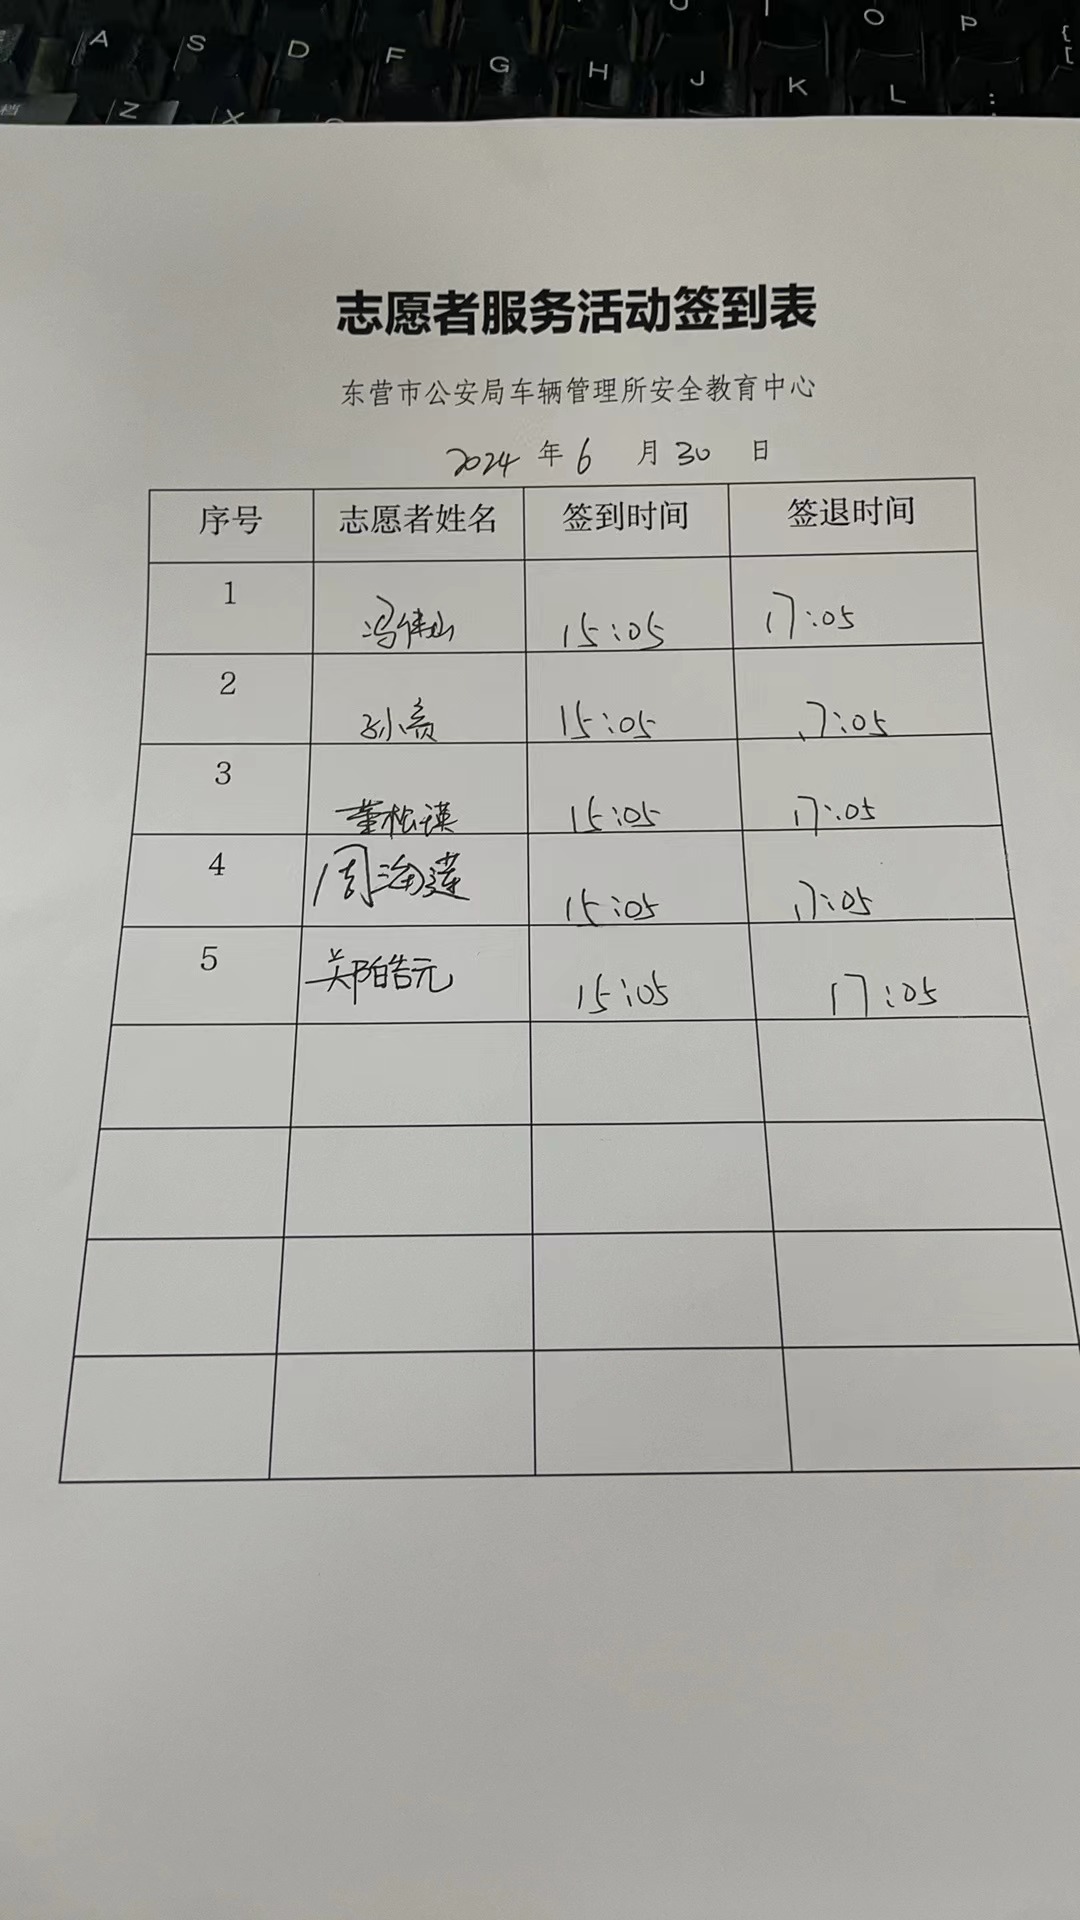 A S D F G H J K L :
Z X
I O P { [
档
志愿者服务活动签到表
东营市公安局车辆管理所安全教育中心
2024 年 6 月 30 日
序号 志愿者姓名 签到时间 签退时间
1 冯伟灿 15:05 17:05
2 孙 15:05 17:05
3 董松瑛 15:05 17:05
4 周海莲 15:05 17:05
5 郑皓元 15:05 17:05